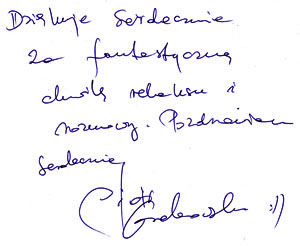 Dziękuję Serdecznie
za fantastyczną
chwilę relaksu i
rozmowy. Pozdrawiam
Serdecznie
:))